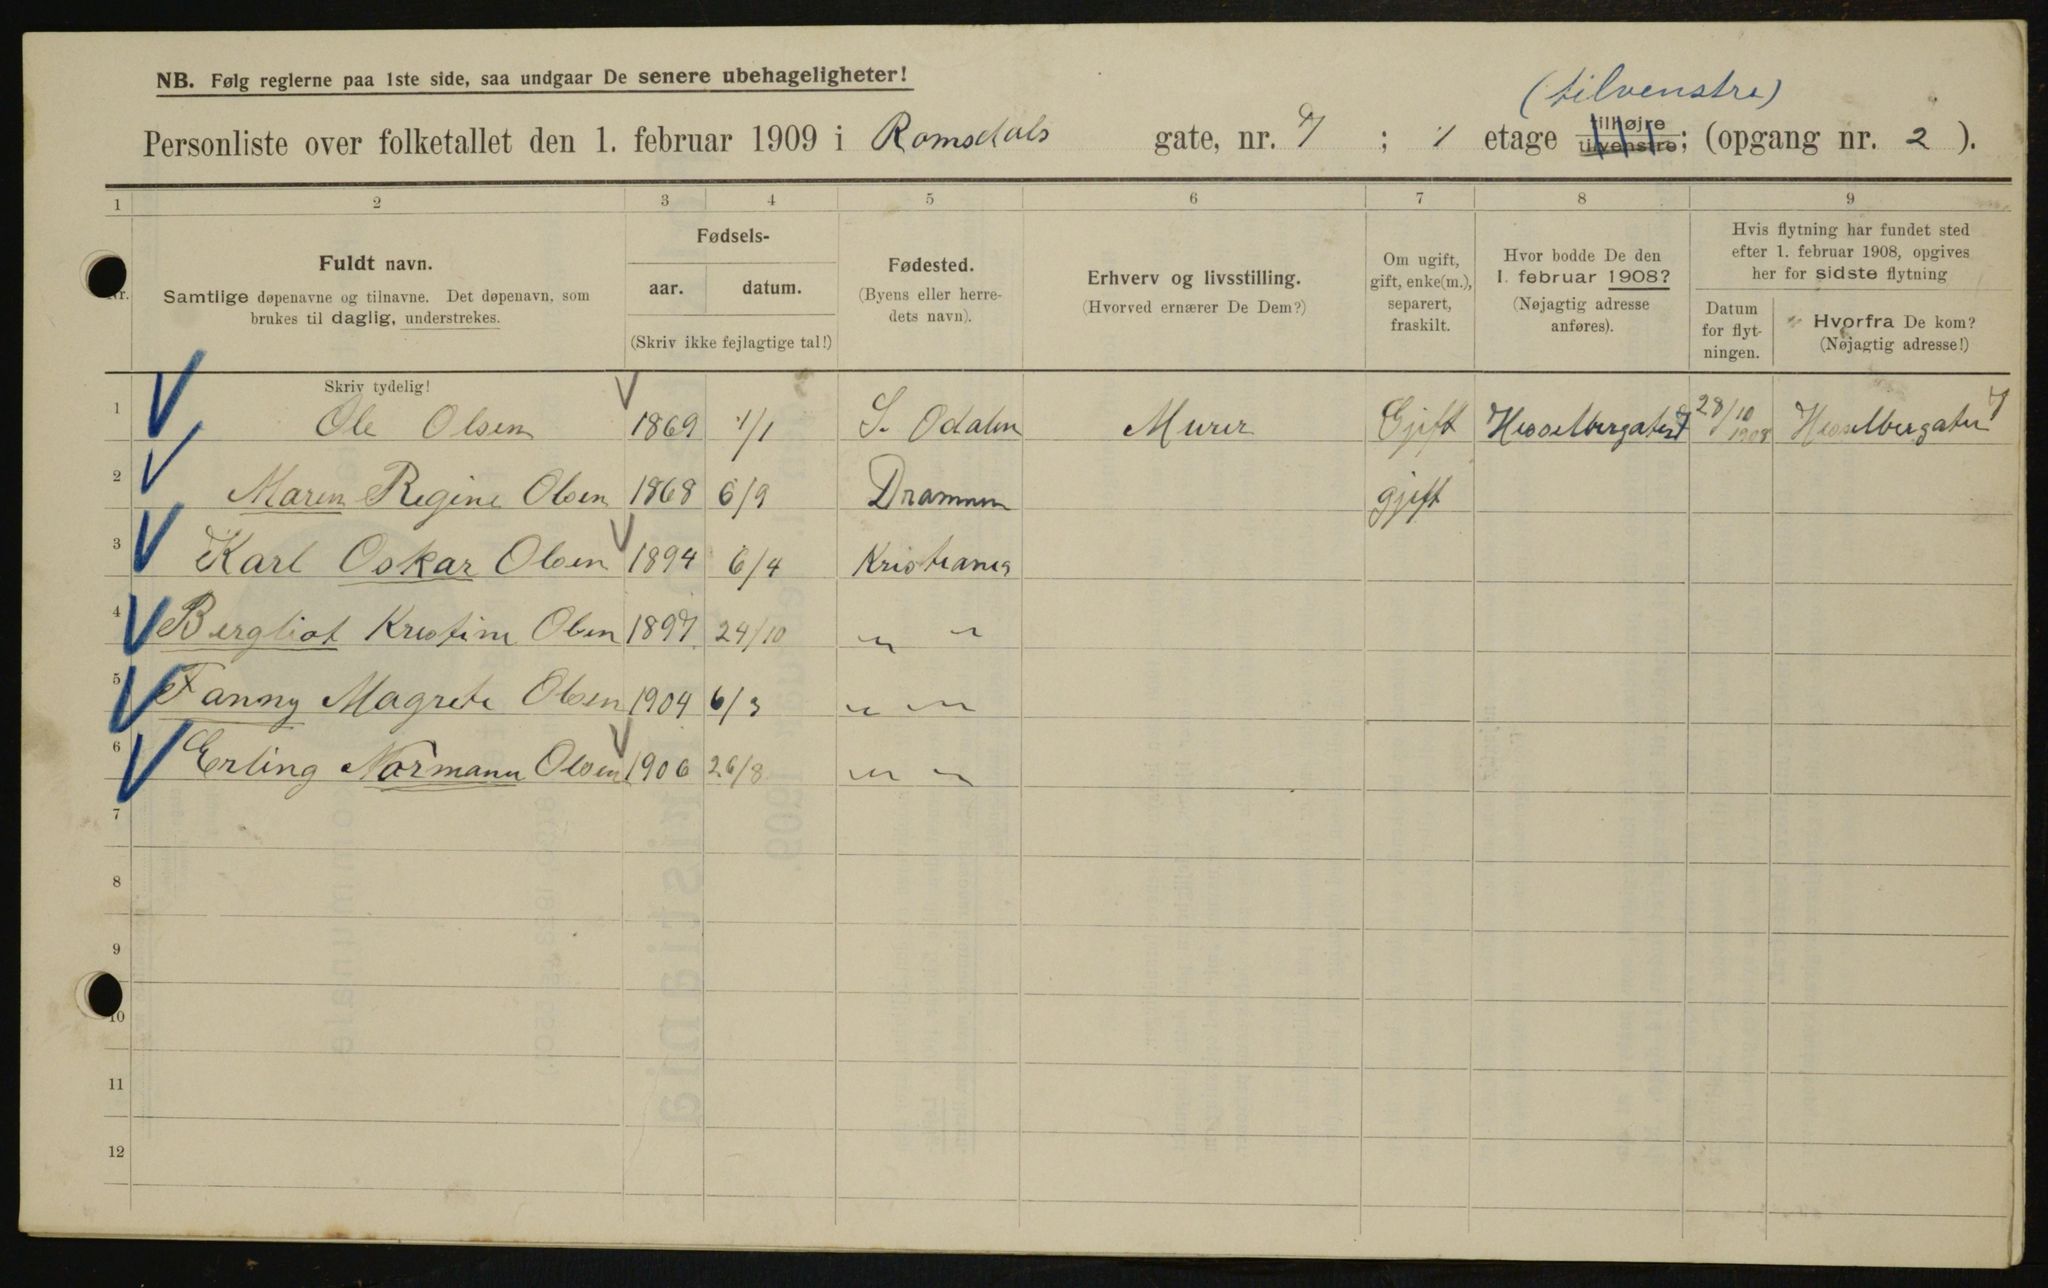 NB. Følg reglerne paa 1ste side, saa undgaar De senere ubehageligheter!
(tilvenstre)
Personliste over folketallet den 1. februar 1909 i Romsdals gate, nr. 7 ; 1 etage tilhøjre tilvenstre; (opgang nr. 2 ).
1 2 3 4 5 6 7 8 9
Nr.
Fuldt navn.
Samtlige døpenavne og tilnavne. Det døpenavn, som
brukes til daglig, understrekes.
Fødsels-
aar. datum.
(Skriv ikke fejlagtige tal!)
Fødested.
(Byens eller herre-
dets navn).
Erhverv og livsstilling.
(Hvorved ernærer De Dem?)
Om ugift,
gift, enke(m.),
separert,
fraskilt.
Hvor bodde De den
1. februar 1908?
(Nøjagtig adresse
anføres).
Hvis flytning har fundet sted
efter 1. februar 1908, opgives
her for sidste flytning
Datum
for flyt-
ningen.
Hvorfra De kom?
(Nøjagtig adresse!)
Skriv tydelig!
1 Ole Olsen 1869 1/1 S. Odalen Murer Gift Hesselbergaten 7 28/10 1908 Hesselbergaten 7
2 Maren Regine Olsen 1868 6/9 Drammen gift
3 Karl Oskar Olsen 1894 6/4 Kristiania
4 Bergliot Kristine Olsen 1897 24/10 " "
5 Fanny Magrete Olsen 1904 6/3 " "
6 Erling Normann Olsen 1906 26/8 " "
7
8
9
10
11
12